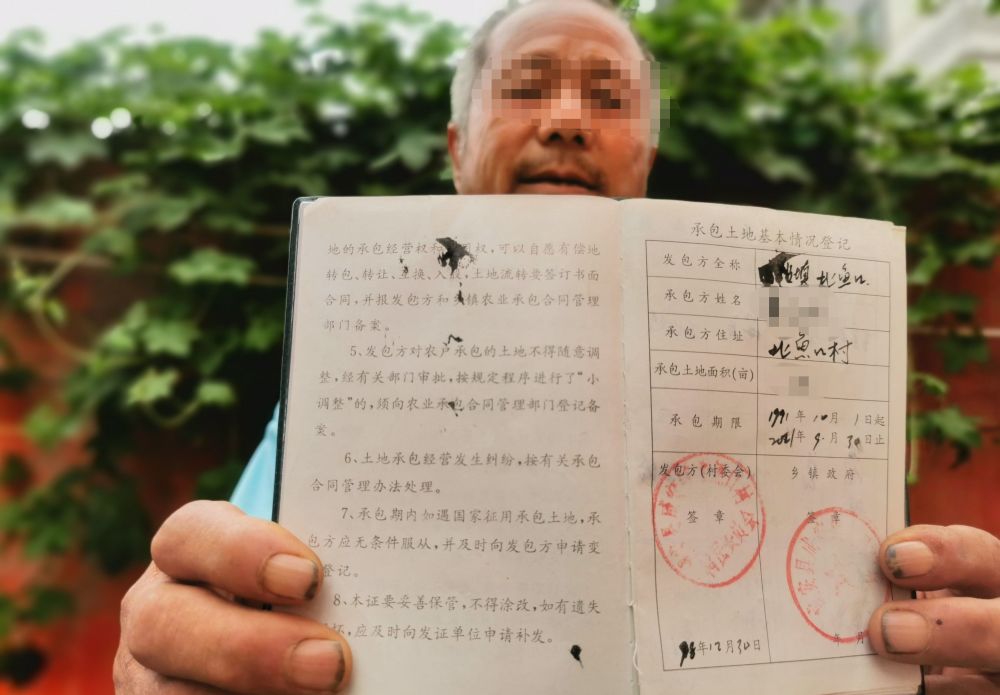 地的承包经营权和 权,可以自愿有偿地
转包、转让、互换、入股,土地流转要签订书面
合同,并报发包方和乡镇农业承包合同管理
部门备案。
5、发包方对农户承包的土地不得随意调
整,经有关部门审批,按规定程序进行了“小
调整”的,须向农业承包合同管理部门登记备
案。
6、土地承包经营发生纠纷,按有关承包
合同管理办法处理。
7、承包期内如遇国家征用承包土地,承
包方应无条件服从,并及时向发包方申请变
登记。
8、本证要妥善保管,不得涂改,如有遗失
坏,应及时向发证单位申请补发。
承包土地基本情况登记
发包方全称 北魚口
承包方姓名
承包方住址 北魚口村
承包土地面积(亩)
承包期限 1991年10月1日起
2021年9月30日止
发包方(村委会) 乡镇政府
签章 签章
98年12月30日 年 月